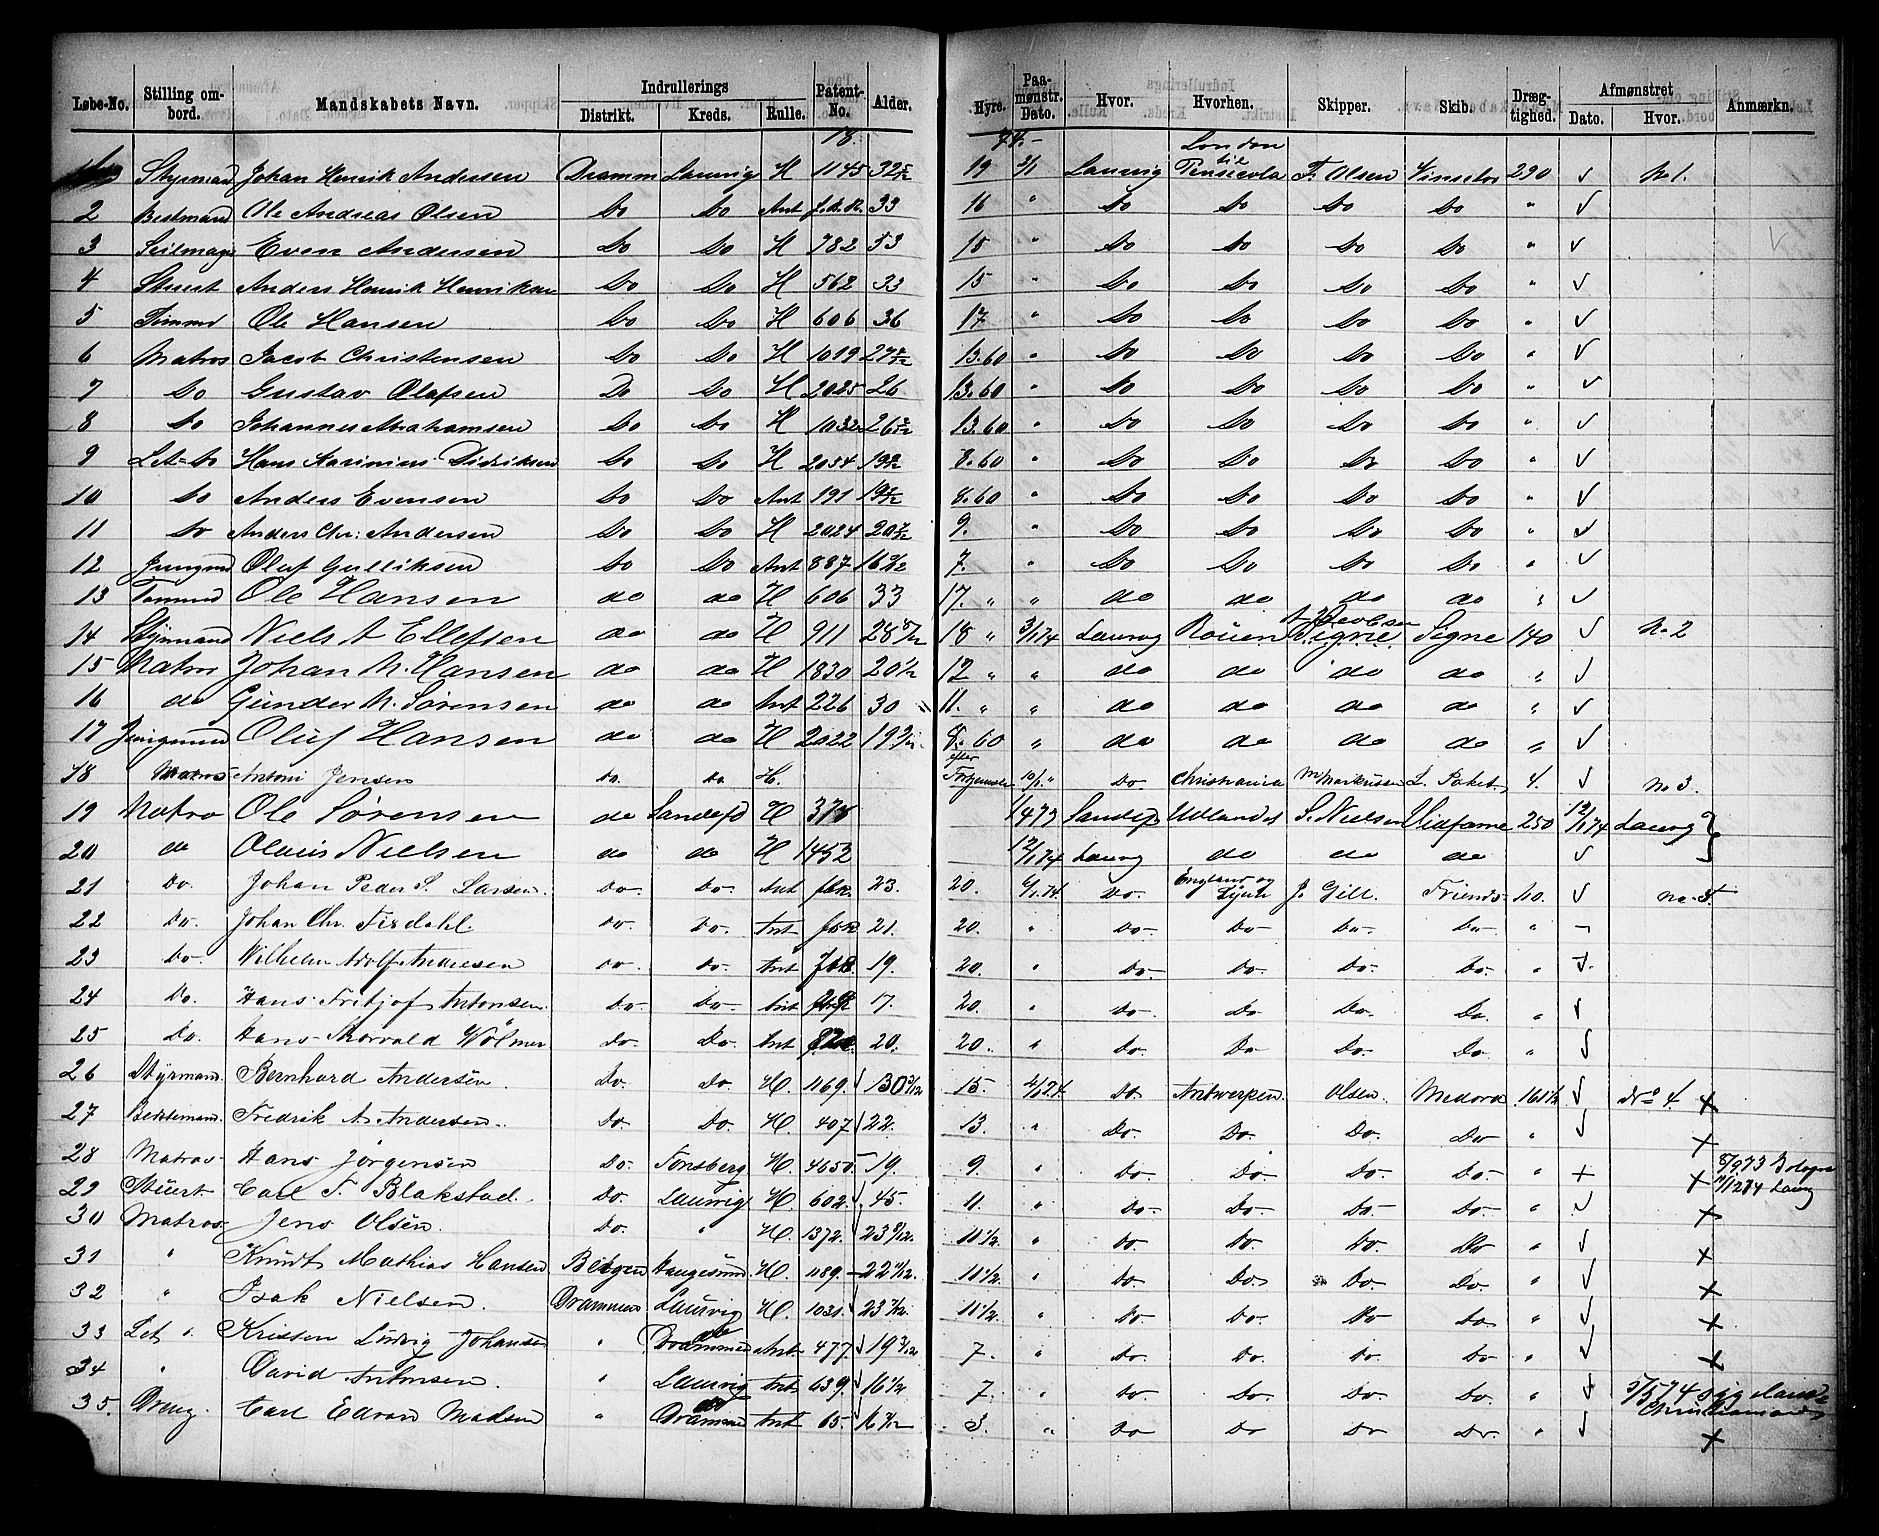 Løbe-No. Stilling ombord. Mandskabets Navn. Indrullerings Distrikt. Kreds. Rulle. Patent-No. Alder. Hyre. Paamønstr. Dato. Hvor. Hvorhen. Skipper. Skib. Drægtighed. Afmønstret Dato. Hvor. Anmærkn.
18. 74.- London til
Styrmand Johan Henrik Andersen Dramm Laurvig H 1145 32 5/12 19 3/1 Laurvig Pensicola F. Olsen 290 ✓ No 1.
2 Bestmand Ole Andreas Olsen Do Do Ant f.b.R. 33 16 " Do Do Do Do " ✓
3 Seilmager Even Andersen Do Do H 782 53 15 " Do Do Do Do " ✓
4 Stuert Anders Henrik Henriksen Do Do H 562 33 15 " Do Do Do Do " ✓
5 Tømmd Ole Hansen Do Do H 606 36 17 " Do Do Do Do " ✓
6 Matros Jacob Christensen Do Do H 1099 13.60 " Do Do Do Do " ✓
7 Do Gustav Olafsen Do Do H 2025 26 13.60 " Do Do Do Do " ✓
8 Do Johannes Abrahamsen Do Do H 1032 13.60 " Do Do Do Do " ✓
9 Let-Do Hans Karinius Didriksen Do Do H 2034 8.60 " Do Do Do Do " ✓
10 Do Anders Evensen Do Do Ant 191 8.60 " Do Do Do Do " ✓
11 Do Anders Chr: Andersen Do Do H 2024 20 7/12 9. " Do Do Do Do " ✓
12 Jungmd Oluf Gulliksen Do Do Ant 887 7. " Do Do Do Do " ✓
13 Tømmd Ole Hansen do do H 606 33 17. " " do do do do " ✓
14 Styrmand Niels A Ellefsen do do H 911 28 8/12 18 " 3/1 74 Laurvg Rouen A Jacobsen Signe Signe 140 ✓ No 2
15 Matros Johan M. Hansen do do H 1830 20 1/2 12 " " do do do do " ✓
16 do Gunder M. Sørensen do do Ant 226 30 11. " " do do do do " ✓
17 Jungmand Oluf Hansen do do H 2022 8.60 " do do do do " ✓
18 Matros Antoni Jensen Do. Do H. efter Fortjeneste 10/1 " Do. Christiania M Markussen L. Paket 4. ✓ No 3.
19 Matro Ole Sørensen do Sandefd H 1/4 73 Sandefj Udlandet S. Nielsen Vidfarne 250 12/1 74 Laurvg
20 do Olaus Nielsen do do H 1452 12/1 74 Laurvg do do do ✓
21 Do. Johan Peder S. Larsen. Do- Do- Ant fbr. 23. 20. 6/1.74. Do. England og J. Gill. Friends 110. ✓
22 Do. Johan Chr. Do- Do- Ant fbr 21. 20. " Do- Do- Do- Do- "
23 Do. Wilhelm Adolf Andresen Do. Do- Ant 19. 20. " Do- Do- Do- Do- "
24 Do. Hans Fritjof Antonsen. Do- Do- Ant 17. 20. " Do- Do Do. Do. " ✓
25 Do. Hans Thorvald Wølmer Do. Do. Ant 20. 20. " Do. Do Do- Do. " ✓
26 Styrmand. Bernhard Andersen. Do. Do. H. 1169. 30 3/12 15- Do Antwerpen Olsen. Medora 161 1/2 ✓ No 4. x
27 Bedstemand. Fredrik A. Andersen. Do. Do. H. 407 22. 13. " Do. Do. Do. Do " ✓ x
28 Matros- Hans Jørgensen Do- Tønsberg H. 4650- 19. 9. " Do- Do- Do- Do- " + x
29 Stuert- Carl F. Blakstad. Do. Laurvig H. 602. 45. 11. " Do- Do- Do- Do- " ✓ x
30 Matros- Jens Olsen. Do. " H. 1372. 23 8/12. 11 1/2. " Do. Do. Do. Do " ✓ x
31 " Knudt Mathias Hansen Bergen Haugesund H. 1189- 22 11/12. 11 1/2. " Do Do. Do. Do. " ✓ x
32 " Isak Nielsen. Drammen Laurvig H. 1031. 11 1/2 " Do- Do- Do Do. " ✓ x
33 Let " Kristen Ludvig Johansen " Drammen do Ant- 477. 19 3/12 7. " Do. Do. Do. Do " ✓ x
34 " David Antonsen. " Laurvig Ant 639. 16 1/2 7. " Do Do. Do. Do. "
35. Dreng. Carl Edvan Madsen " Drammen Ant 65- 3. " Do Do Do Do. " ✓ x